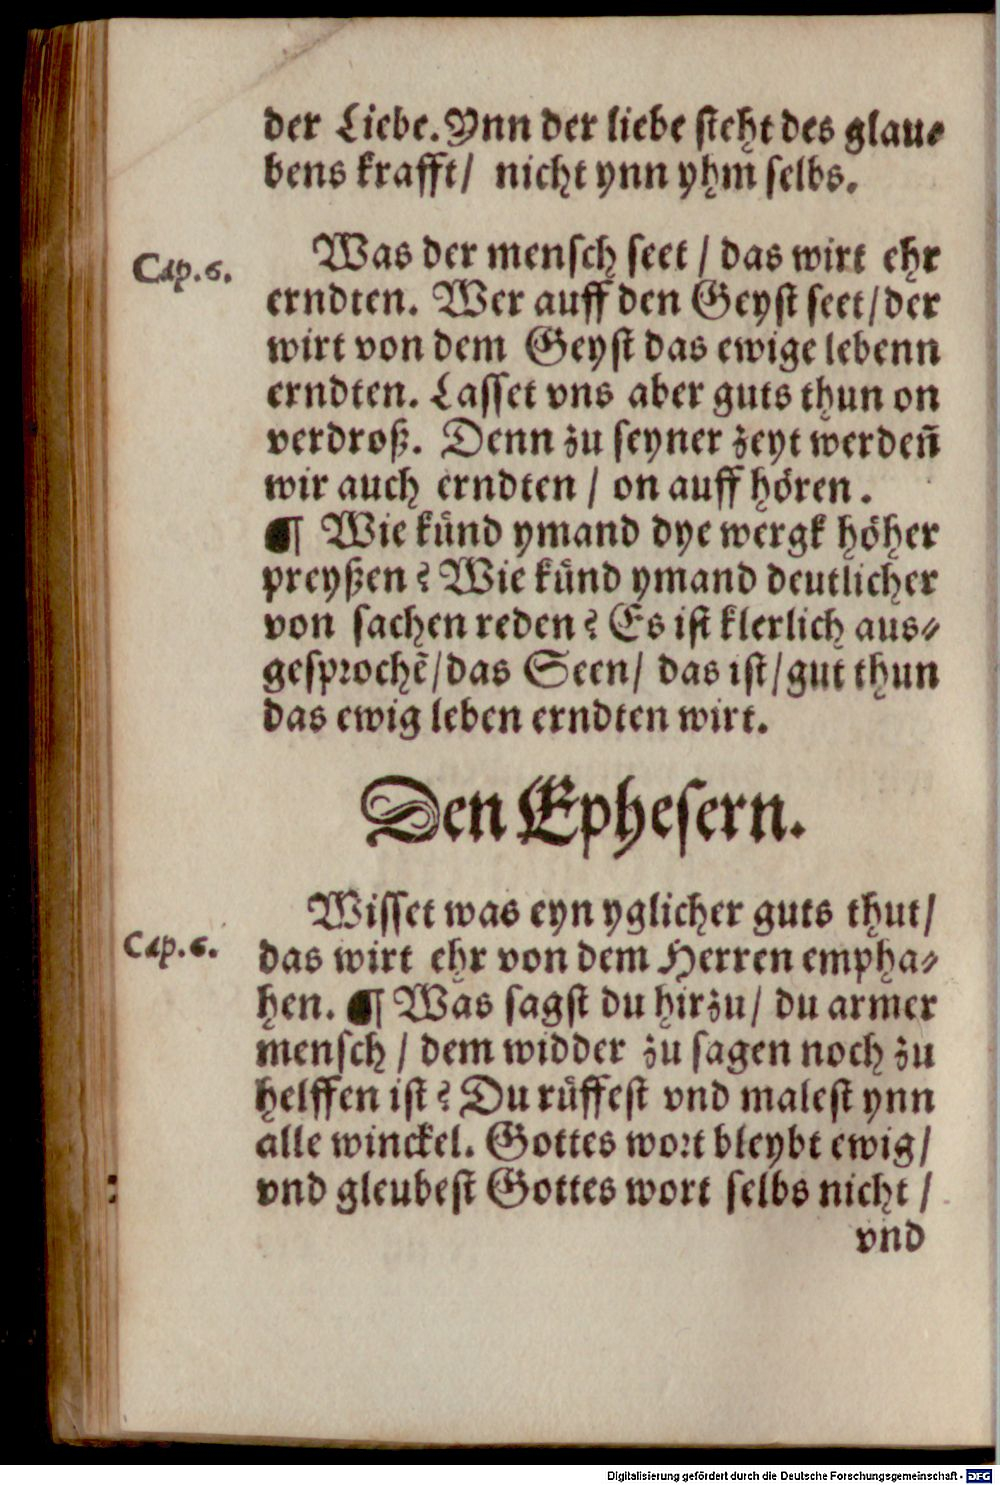 der Liebe. Ynn der liebe steht des glau⸗
bens krafft/ nicht ynn yhm selbs.
Cap. 6.
Was der mensch seet / das wirt ehr
erndten. Wer auff den Geyst seet/der
wirt von dem Geyst das ewige lebenn
erndten. Lasset vns aber guts thun on
verdroß. Denn zu seyner zeyt werden̄
wir auch erndten / on auff hören.
¶ Wie künd ymand dye wergk höher
preyßen? Wie künd ymand deutlicher
von sachen reden? Es ist klerlich aus⸗
gesprochē/das Seen/ das ist/gut thun
das ewig leben erndten wirt.
Den Ephesern.
Cap. 6.
Wisset was eyn yglicher guts thut/
das wirt ehr von dem Herren empha⸗
hen. ¶ Was sagst du hirzu/ du armer
mensch / dem widder zu sagen noch zu
helffen ist? Du rüffest vnd malest ynn
alle winckel. Gottes wort bleybt ewig/
vnd gleubest Gottes wort selbs nicht /
vnd
Digitalisierung gefördert durch die Deutsche Forschungsgemeinschaft - DFG